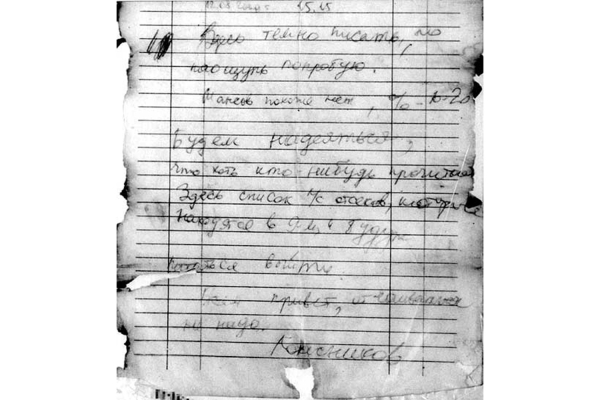 15.15
Здесь темно писать, но
наощупь попробую.
Шансов похоже нет, % 10-20
Будем надеяться,
что хоть кто-нибудь прочитает
Здесь список л/с отсеков, которые
находятся в 9-м и
выйти.
Всем привет, отчаиваться
не надо.
Колесников